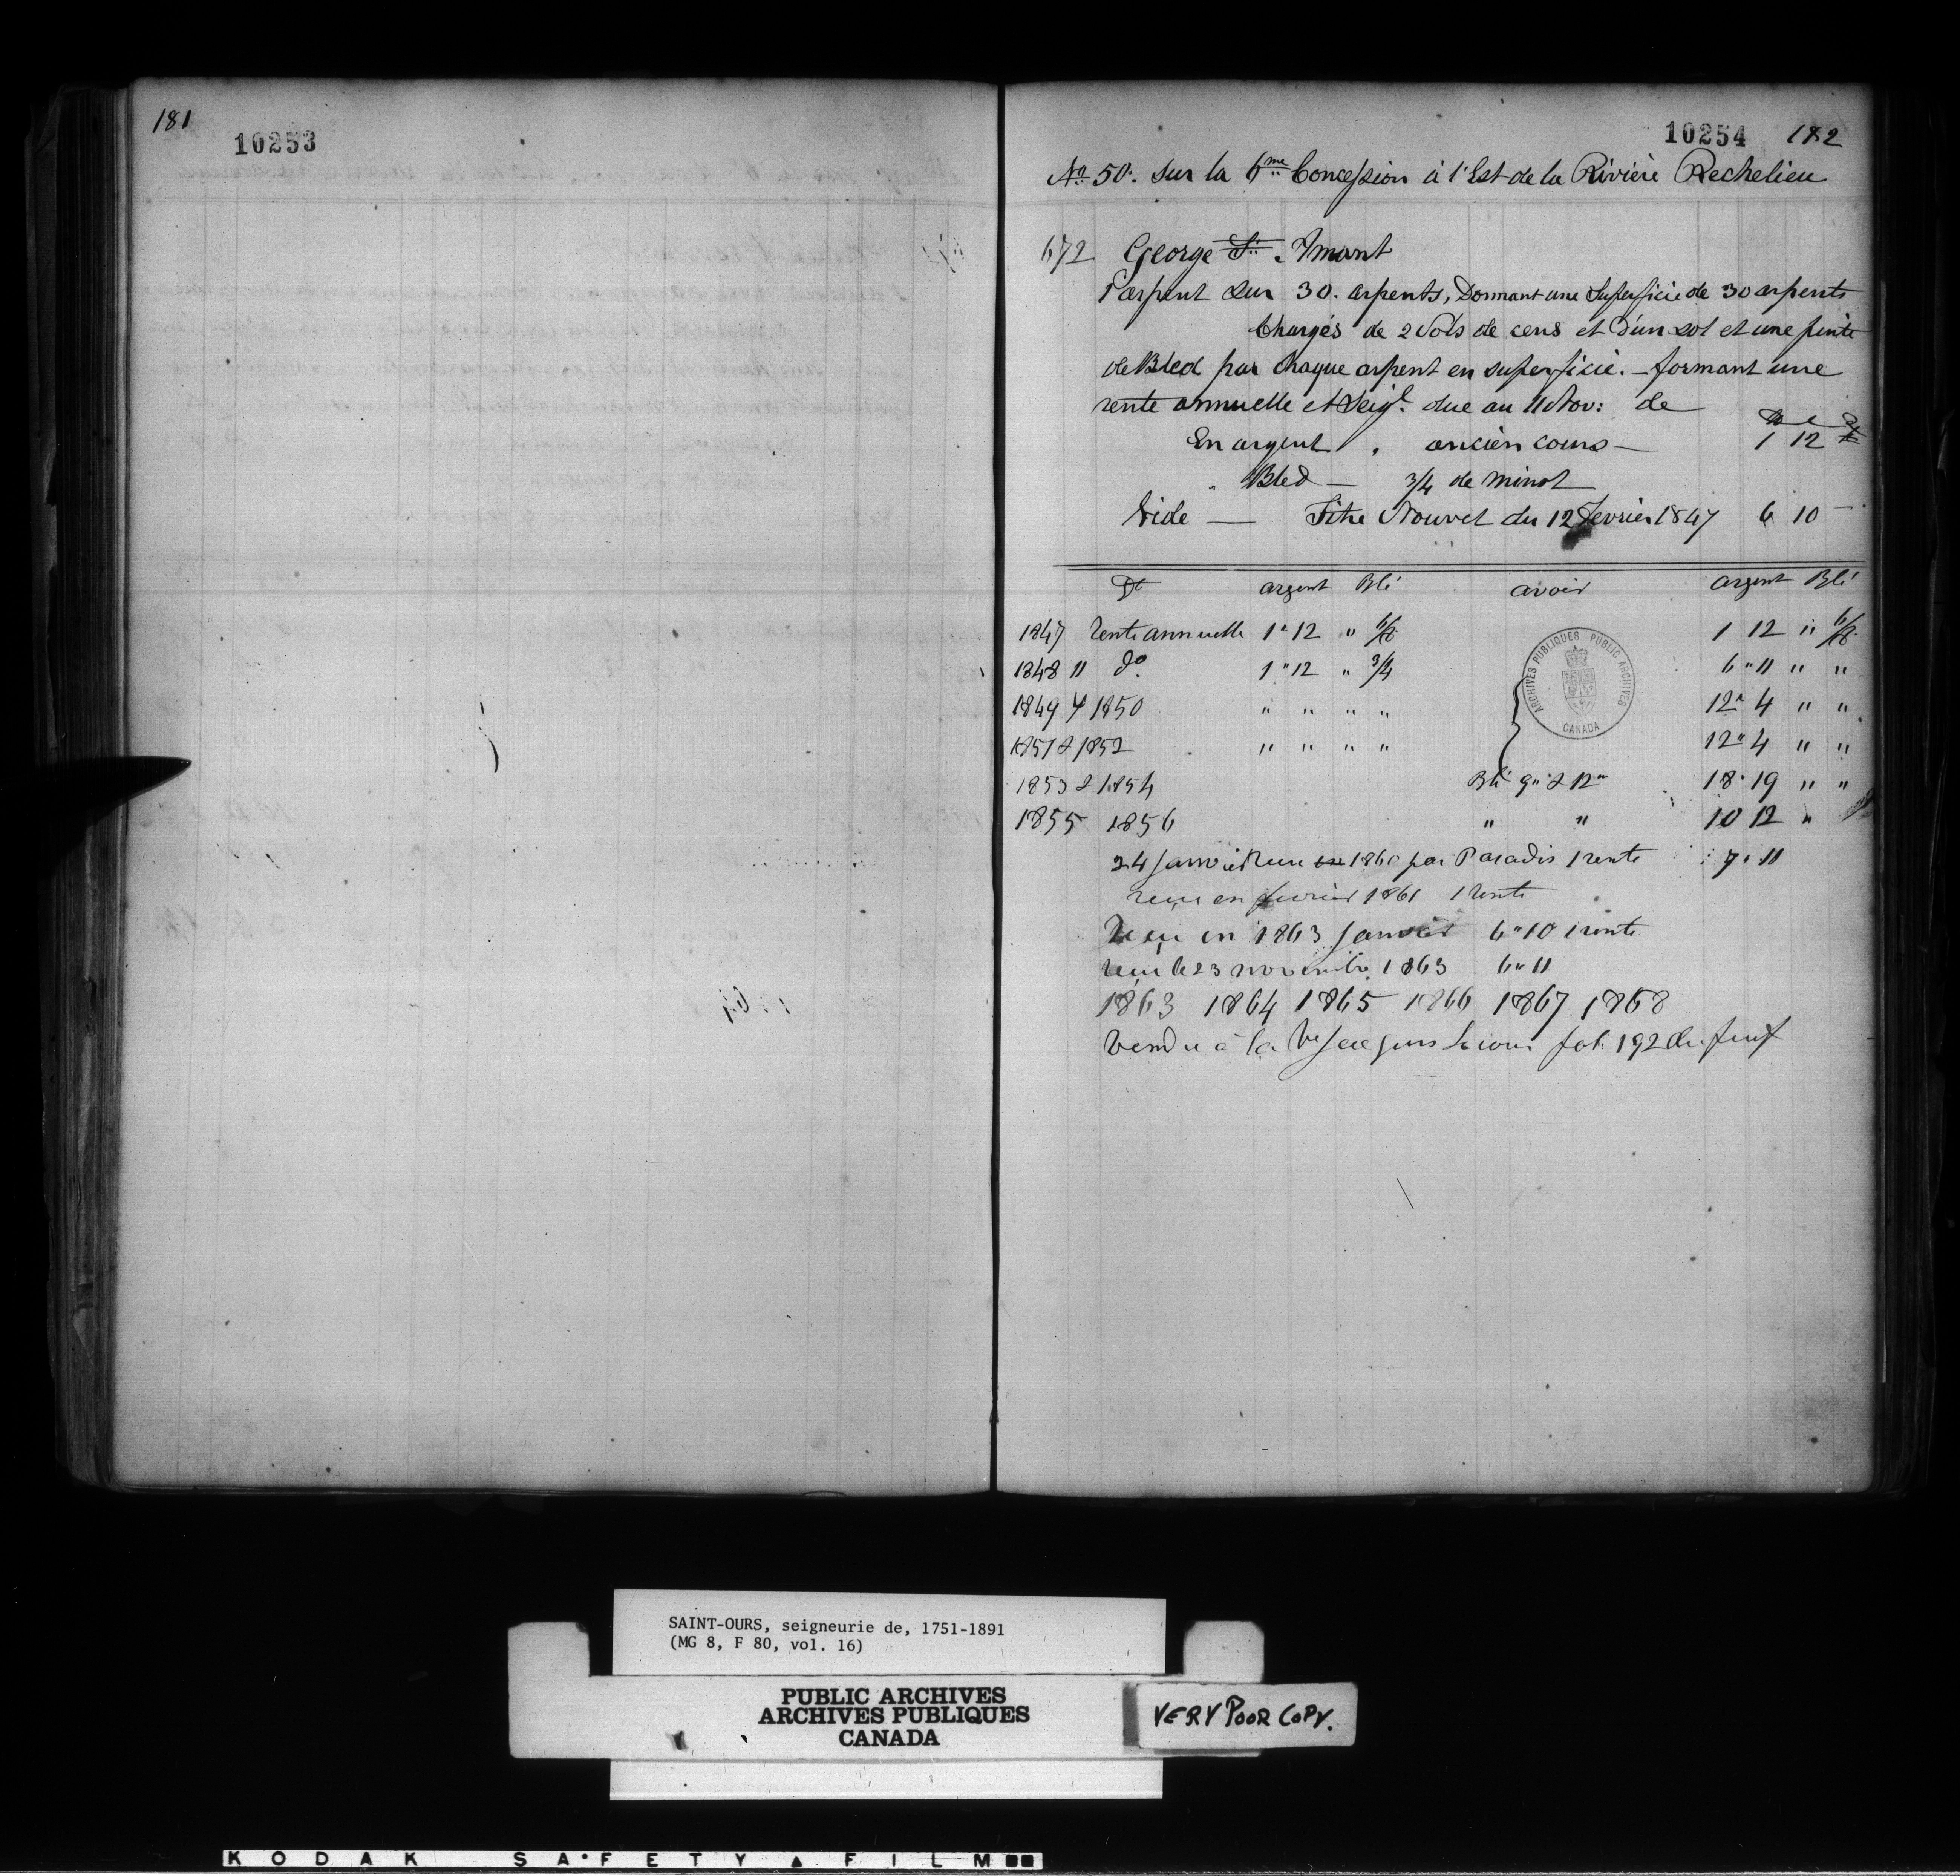 181
10253
10254 182
No 50. sur la 6me Concession à l'Est de la Rivière Rechelieu
672 George St. Amant
1 arpent sur 30. arpents, Donnant une Superficie de 30 arpents
Chargés de 2 Sols de cens et d'un sol et une pinte
de Bled par chaque arpent en superficie. - formant une
rente annuelle et Seigl. due au 11 Nov: de
En argent " ancien cours — 1 12
" Bled — 3/4 de minot
Vide — Titre Nouvel du 12 Fevrier 1847 6 10 -
Dt argent Blé avoir argent Blé
1847 Rente annuelle 1 " 12 " 6/8 1 12 " 6/8
1848 " do 1 " 12 " 3/4 6 " 11 " "
1849 & 1850 " " " " 12 " 4 " "
1851 & 1852 " " " " 12 " 4 " "
1853 & 1854 Blé 9 " & 12 " 18 " 19 " "
1855 1856 " " 10 12 "
24 Janvier Reçu 1860 par Paradis 1 rente 7 " 11
reçu en fevrier 1861 1 rente
Reçu en 1863 Janvier 6 " 10 1 rente
Reçu le 23 novembre 1863 6 " 11
1863 1864 1865 1866 1867 1868
Vendu à la Ve fol. 192 du
ARCHIVES PUBLIQUES PUBLIC ARCHIVES
CANADA
SAINT-OURS, seigneurie de, 1751-1891
(MG 8, F 80, vol. 16)
PUBLIC ARCHIVES
ARCHIVES PUBLIQUES
CANADA
VERY POOR COPY.
KODAK SAFETY FILM